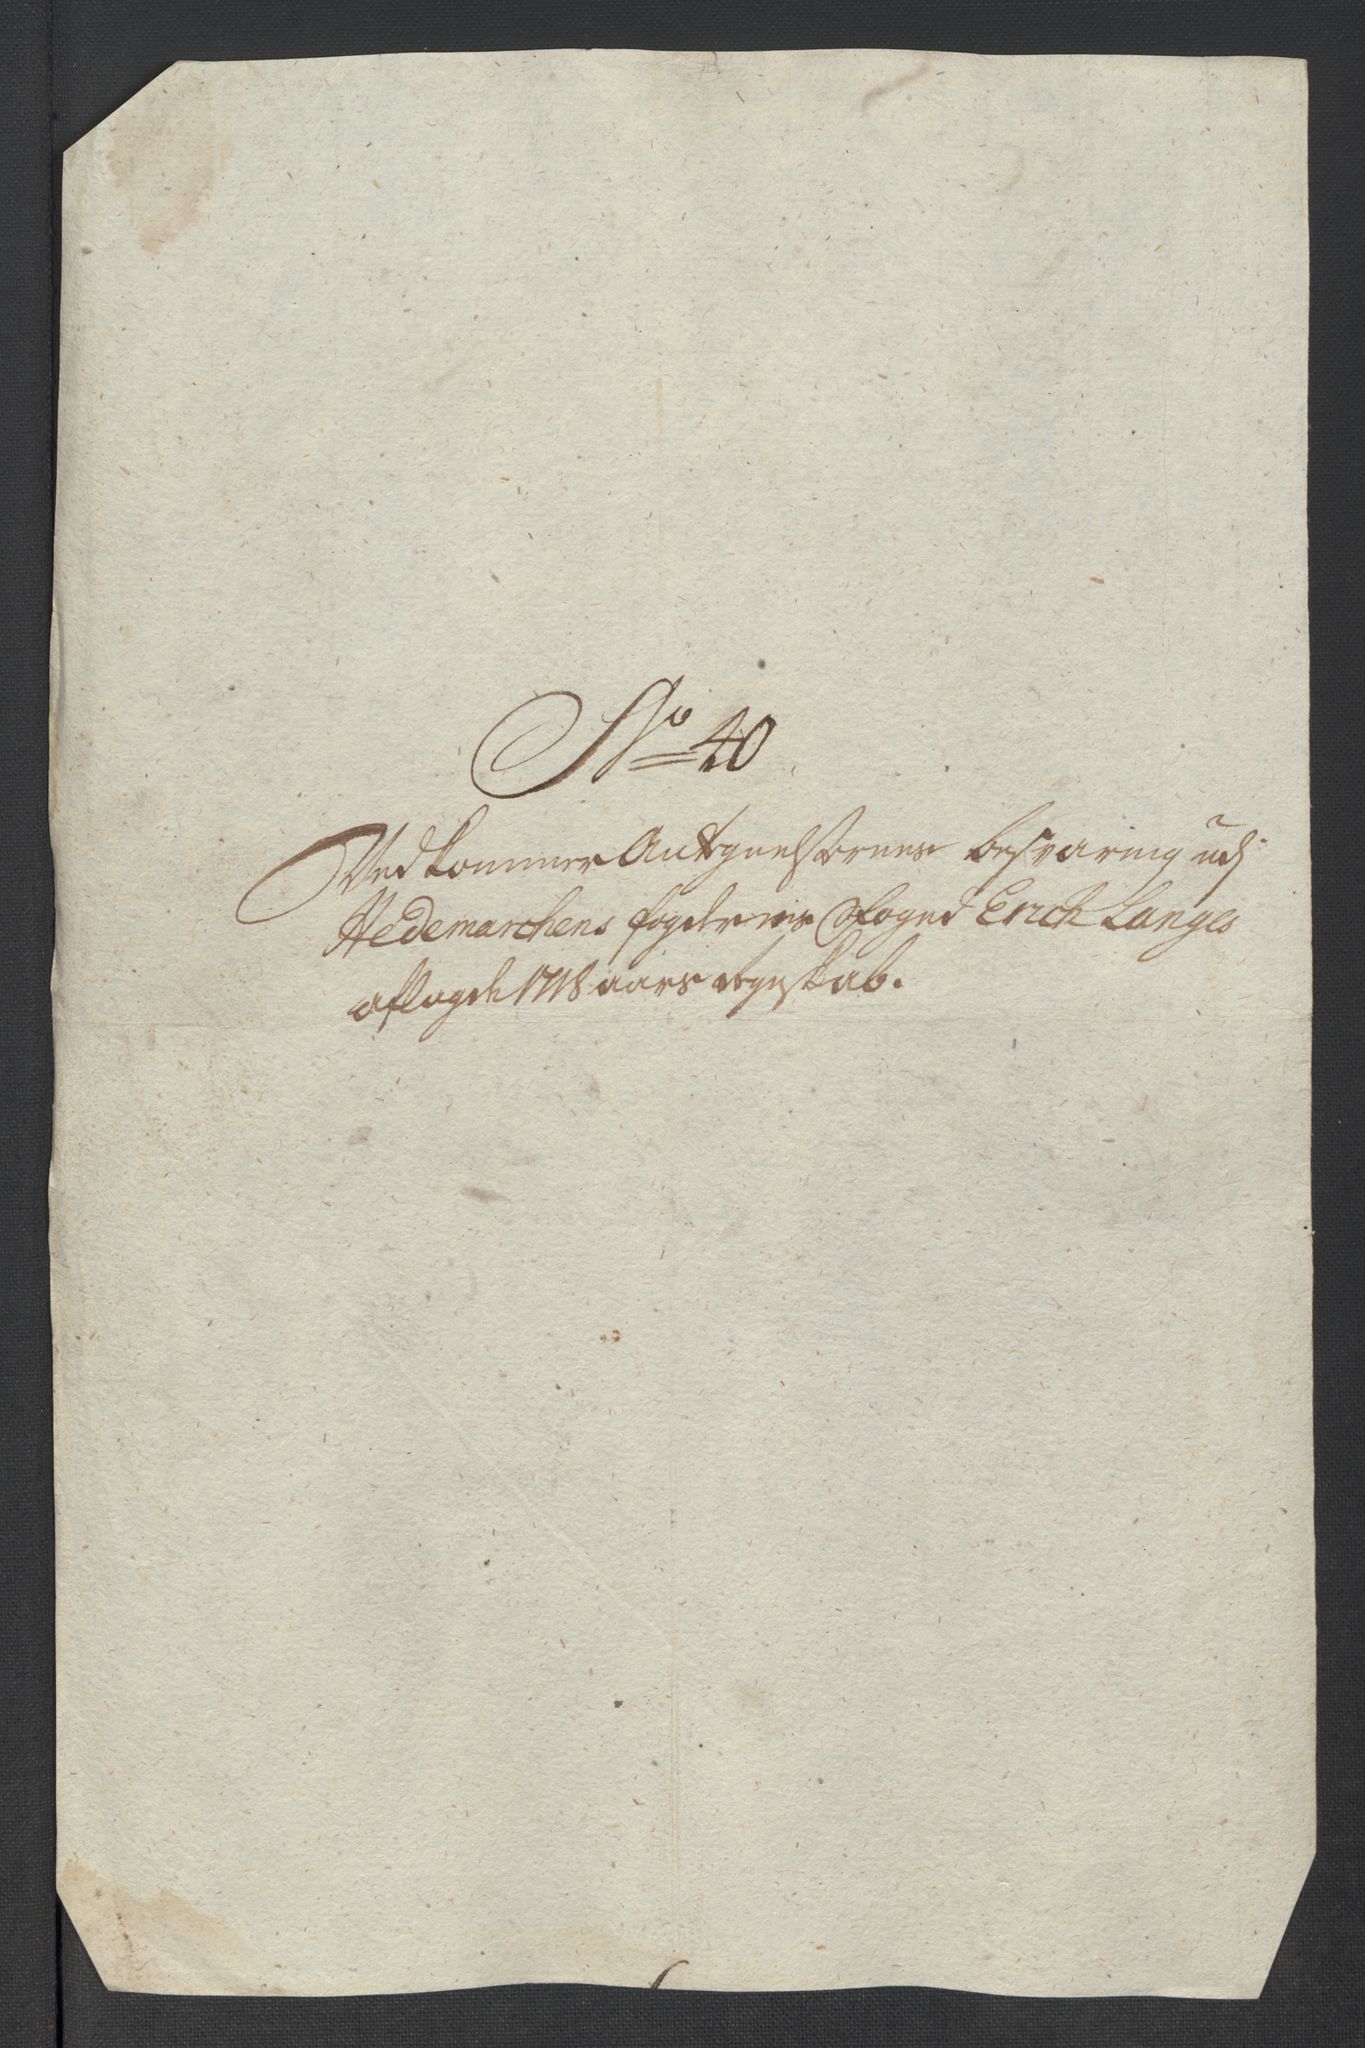 No 40
Vedkommer Antegnelsernes besvaring udj
Hedemarchens fogderie Foged Erich Langes
aflagde 1718 aars regenskab.